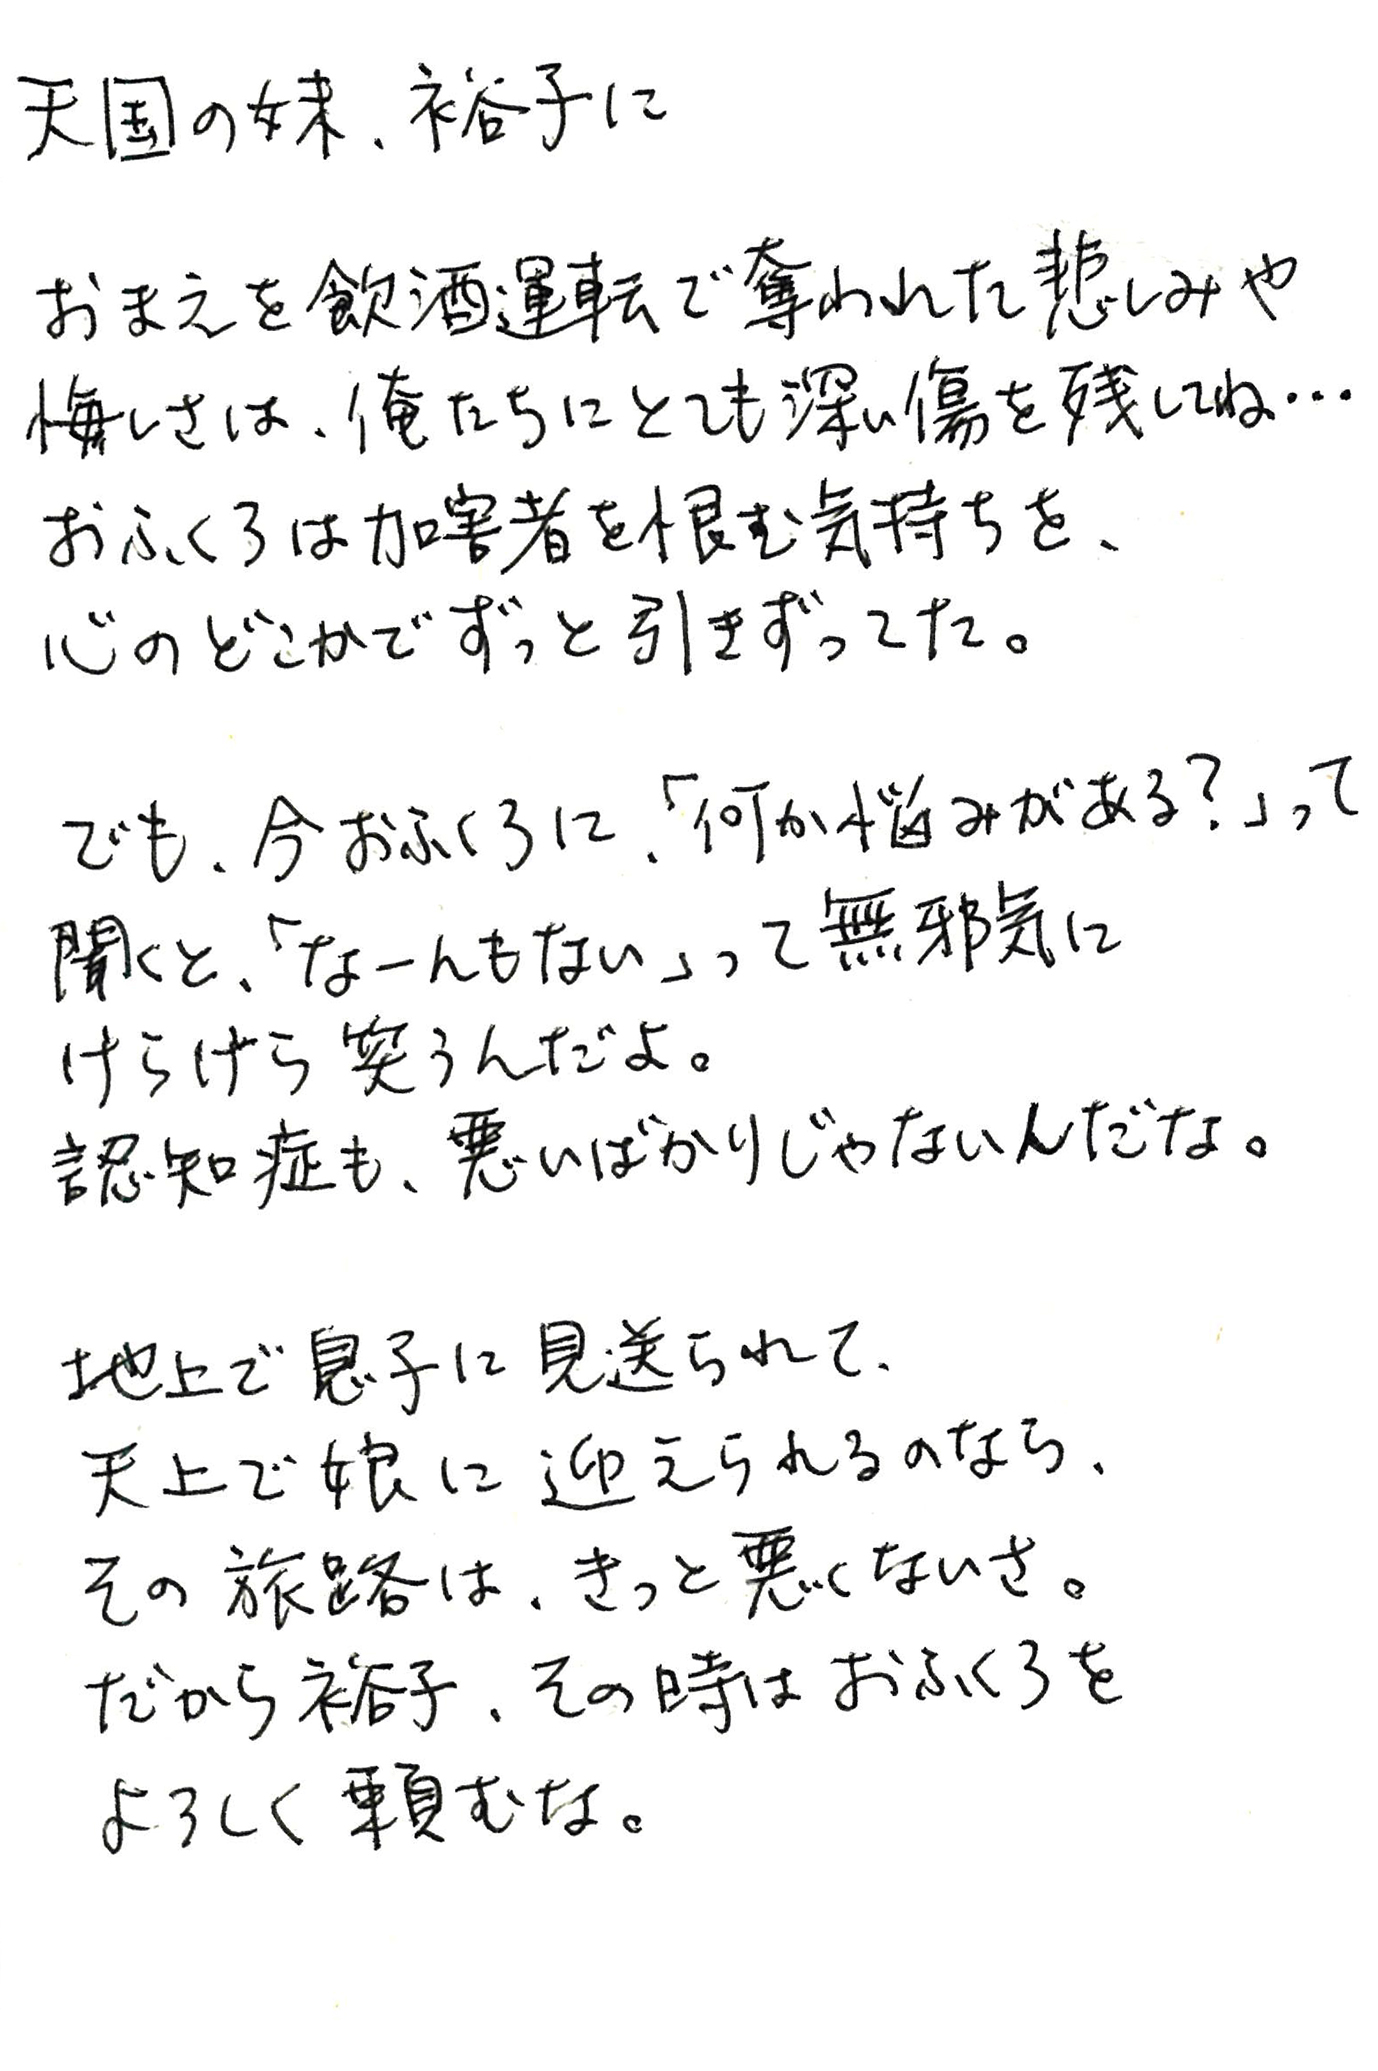 天国の妹、裕子に
おまえを飲酒運転で奪われた悲しみや
悔しさは、俺たちにとても深い傷を残してね…
おふくろは加害者を恨む気持ちを、
心のどこかでずっと引きずってた。
でも、今おふくろに、「何か悩みがある？」って
聞くと、「なーんもない」って無邪気に
けらけら笑うんだよ。
認知症も、悪いばかりじゃないんだな。
地上で息子に見送られて、
天上で娘に迎えられるのなら、
その旅路は、きっと悪くないさ。
だから裕子、その時はおふくろを
よろしく頼むな。